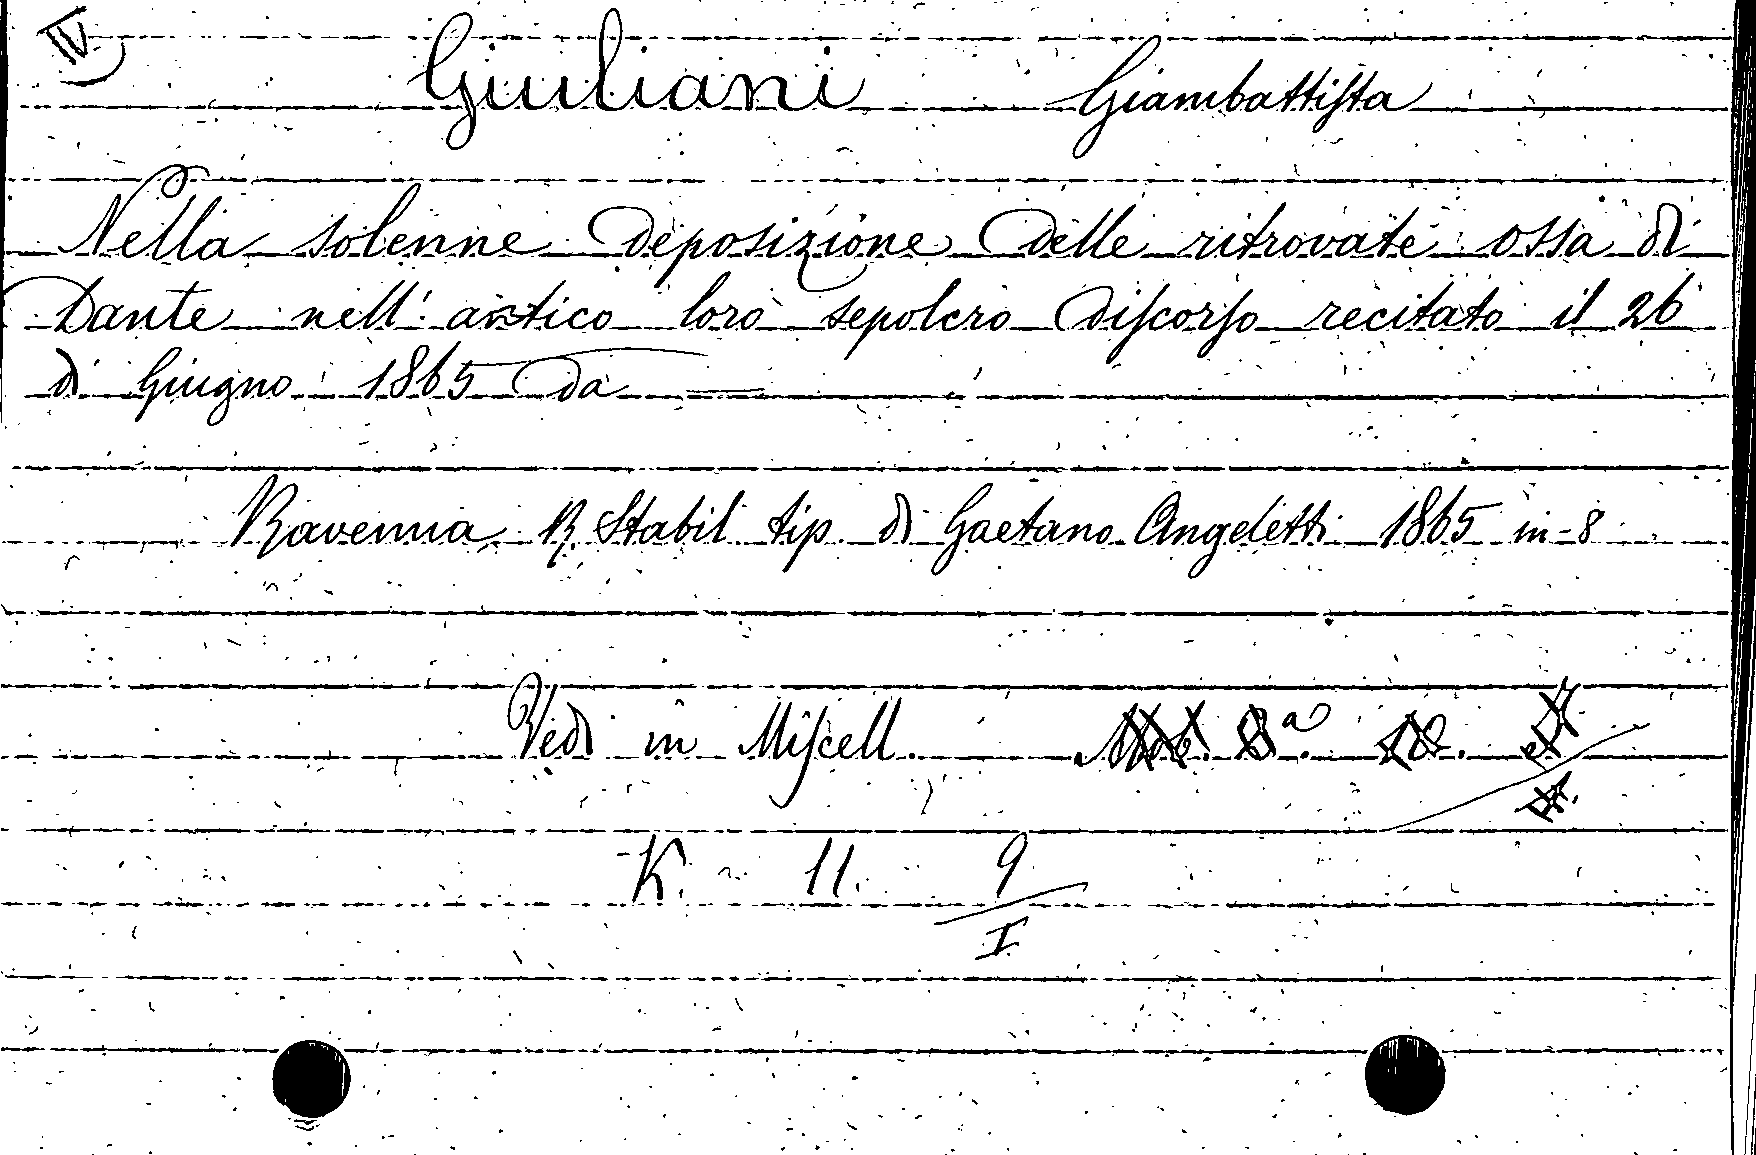 IV.
Giuliani Giambattista
Nella solenne deposizione delle ritrovate ossa di
Dante nell' antico loro sepolcro discorso recitato il 26
di Giugno 1865 da ——
Ravenna, R. Stabil tip. di Gaetano Angeletti 1865 in-8
Vedi in Miscell. 8ª. 18.
K. 11. 9
I.